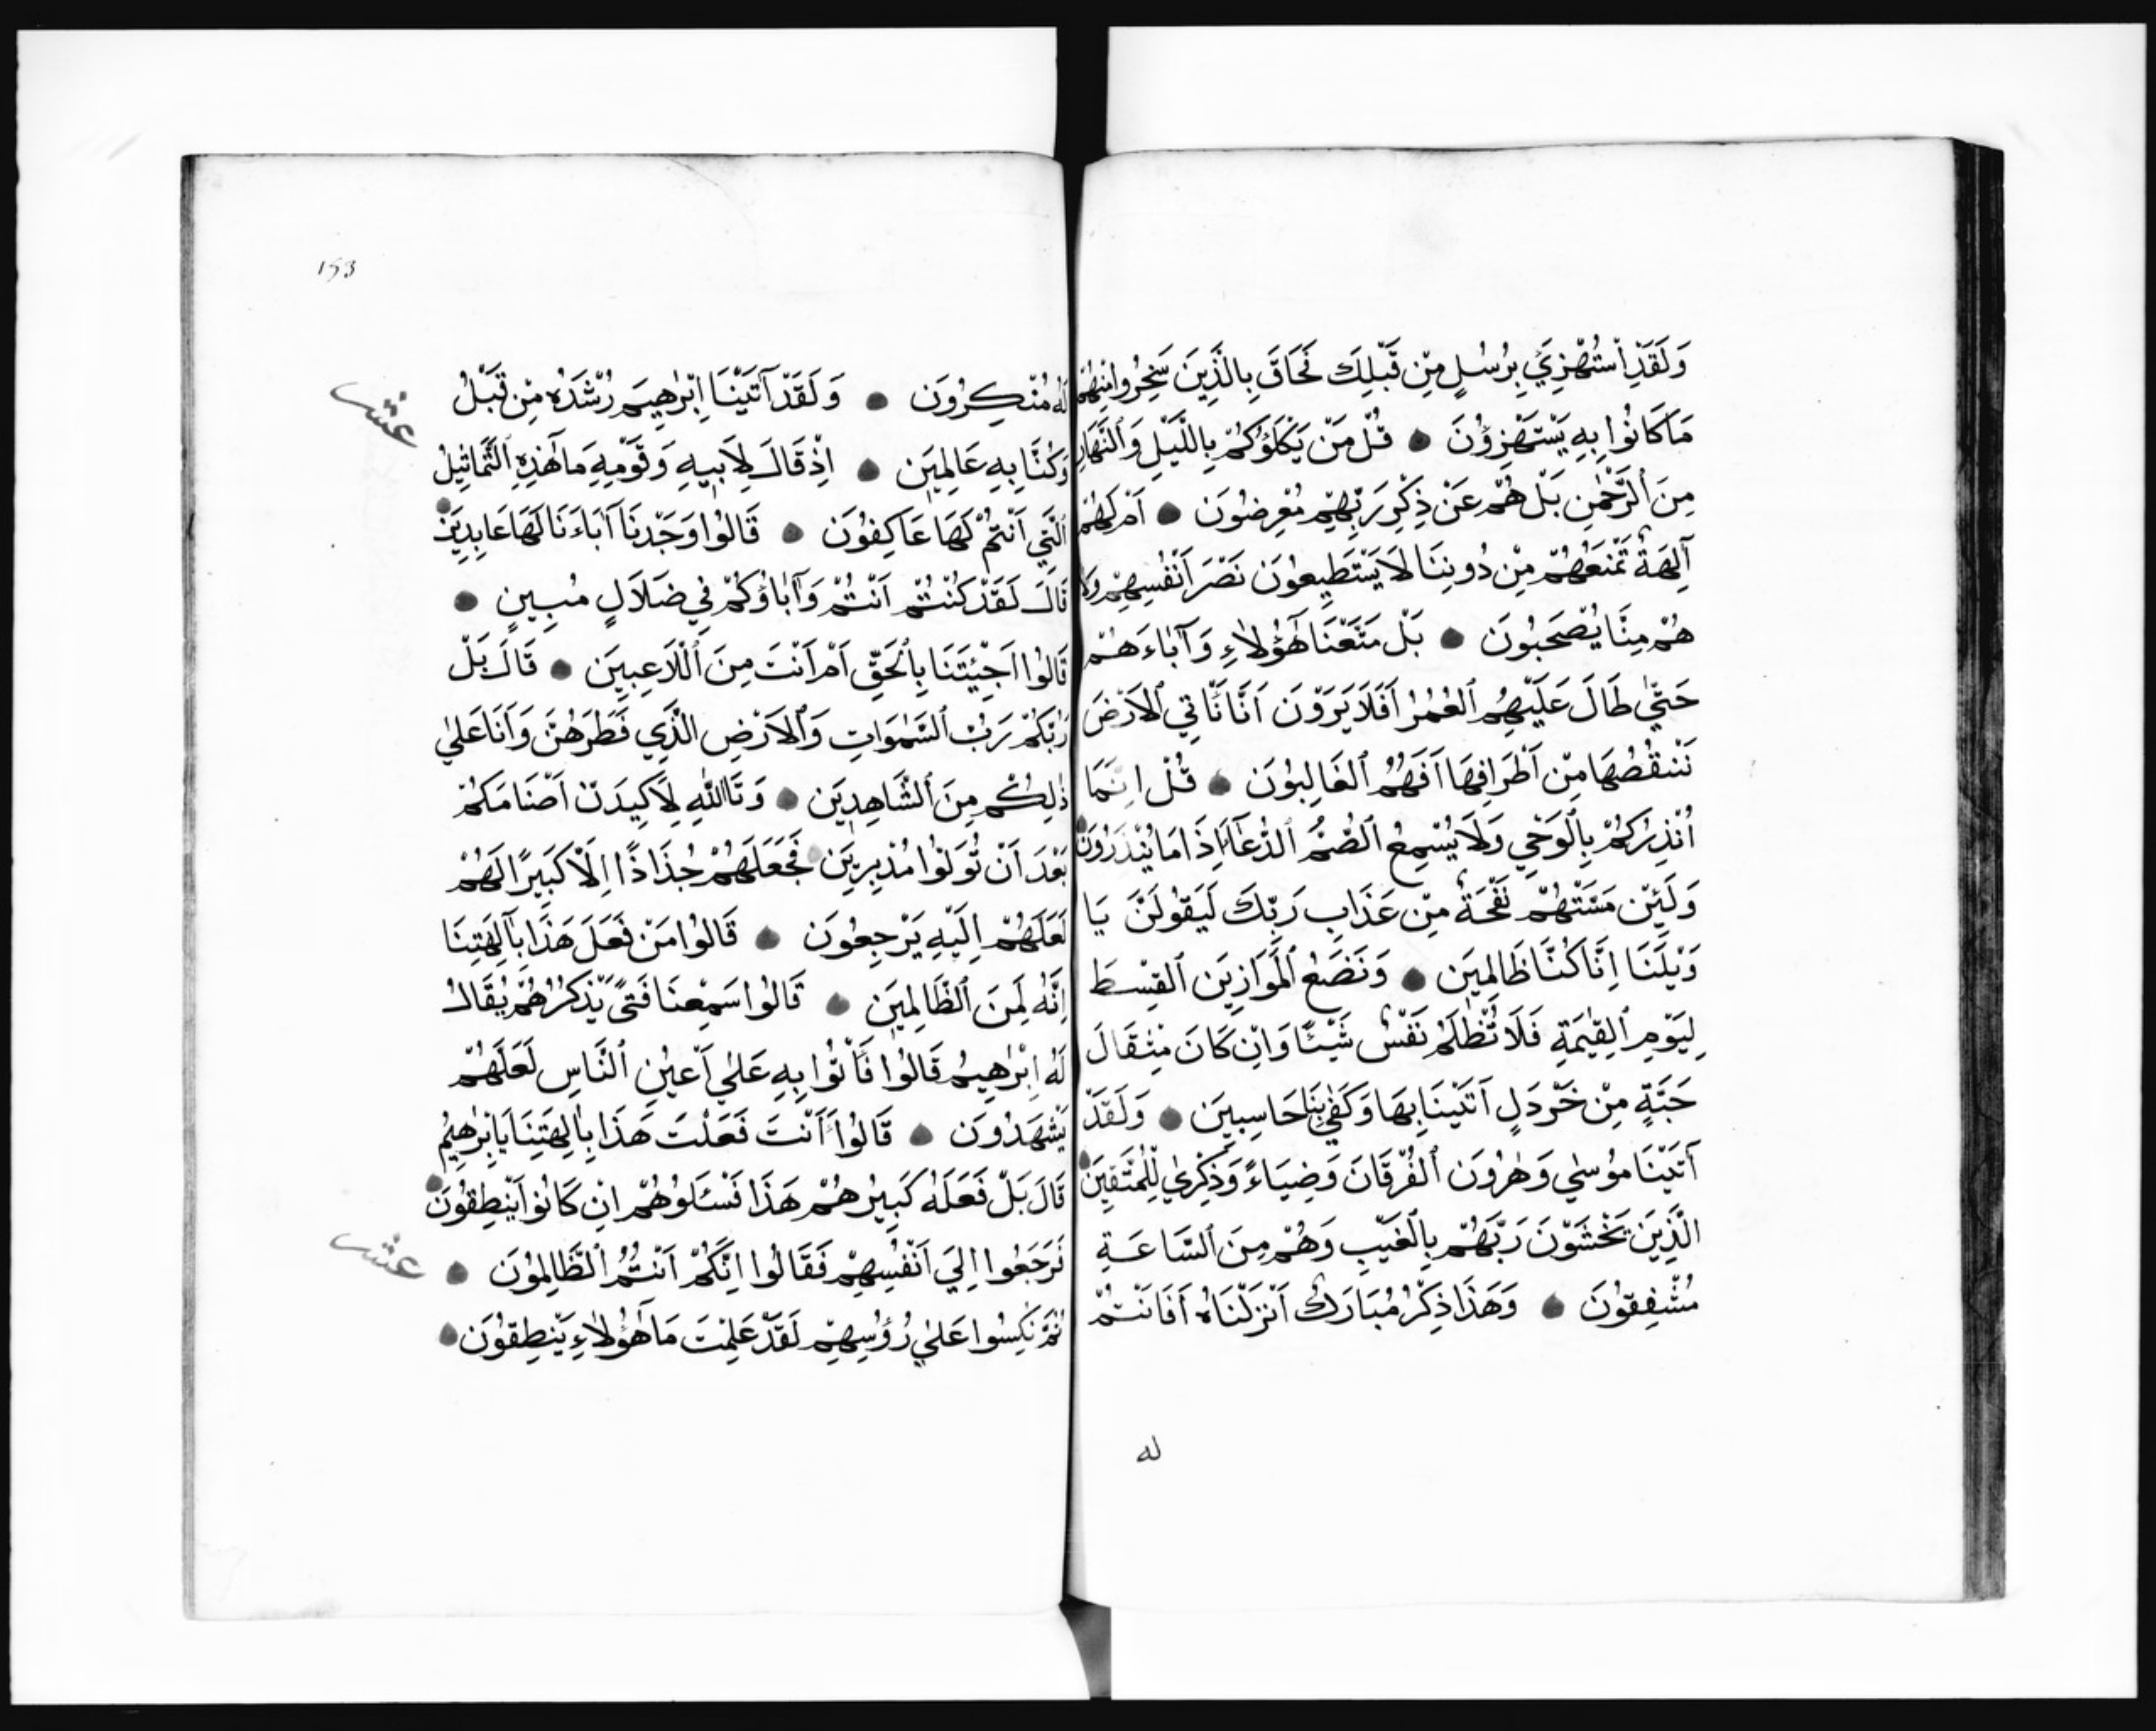 وَلَقَدِ ٱسْتُهْزِئَ بِرُسُلٍ مِنْ قَبْلِكَ فَحَاقَ بِالَّذِينَ سَخِرُوا مِنْهُمْ
مَا كَانُوا بِهِ يَسْتَهْزِؤُنَ ● قُلْ مَنْ يَكْلَؤُكُمْ بِاللَّيْلِ وَٱلنَّهَارِ
مِنَ ٱلرَّحْمٰنِ بَلْ هُمْ عَنْ ذِكْرِ رَبِّهِمْ مُعْرِضُونَ ● اَمْ لَهُمْ
آلِهَةٌ تَمْنَعُهُمْ مِنْ دُونِنَا لَا يَسْتَطِيعُونَ نَصْرَ اَنْفُسِهِمْ وَلَا
هُمْ مِنَّا يُصْحَبُونَ ● بَلْ مَتَّعْنَا هٰٓؤُلَاءِ وَآبَاءَهُمْ
حَتّٰى طَالَ عَلَيْهِمُ ٱلْعُمُرُ اَفَلَا يَرَوْنَ اَنَّا نَأْتِي ٱلْاَرْضَ
نَنْقُصُهَا مِنْ اَطْرَافِهَا اَفَهُمُ ٱلْغَالِبُونَ ● قُلْ اِنَّمَا
اُنْذِرُكُمْ بِٱلْوَحْيِ وَلَا يُسْمِعُ ٱلصُّمُّ ٱلدُّعَآءَ اِذَا مَا يُنْذَرُونَ ●
وَلَئِنْ مَسَّتْهُمْ نَفْحَةٌ مِنْ عَذَابِ رَبِّكَ لَيَقُولُنَّ يَا
وَيْلَنَا اِنَّا كُنَّا ظَالِمِينَ ● وَنَضَعُ ٱلْمَوَازِينَ ٱلْقِسْطَ
لِيَوْمِ ٱلْقِيٰمَةِ فَلَا تُظْلَمُ نَفْسٌ شَيْئًا وَاِنْ كَانَ مِثْقَالَ
حَبَّةٍ مِنْ خَرْدَلٍ اَتَيْنَا بِهَا وَكَفٰى بِنَا حَاسِبِينَ ● وَلَقَدْ
آتَيْنَا مُوسٰى وَهٰرُونَ ٱلْفُرْقَانَ وَضِيَاءً وَذِكْرٰى لِلْمُتَّقِينَ ●
الَّذِينَ يَخْشَوْنَ رَبَّهُمْ بِٱلْغَيْبِ وَهُمْ مِنَ ٱلسَّاعَةِ
مُشْفِقُونَ ● وَهَذَا ذِكْرٌ مُبَارَكٌ اَنْزَلْنَاهُ اَفَاَنْتُمْ
له
153
لَهُ مُنْكِرُونَ ● وَلَقَدْ آتَيْنَا اِبْرٰهِيمَ رُشْدَهُ مِنْ قَبْلُ
عشر
وَكُنَّا بِهِ عَالِمِينَ ● اِذْ قَالَ لِاَبِيهِ وَقَوْمِهِ مَا هٰذِهِ ٱلتَّمَاثِيلُ
الَّتِي اَنْتُمْ لَهَا عَاكِفُونَ ● قَالُوا وَجَدْنَا آبَاءَنَا لَهَا عَابِدِينَ ●
قَالَ لَقَدْ كُنْتُمْ اَنْتُمْ وَآبَاؤُكُمْ فِي ضَلَالٍ مُبِينٍ ●
قَالُوا اَجِئْتَنَا بِٱلْحَقِّ اَمْ اَنْتَ مِنَ ٱللَّاعِبِينَ ● قَالَ بَلْ
رَبُّكُمْ رَبُّ ٱلسَّمٰوَاتِ وَٱلْاَرْضِ الَّذِي فَطَرَهُنَّ وَاَنَا عَلٰى
ذٰلِكُمْ مِنَ ٱلشَّاهِدِينَ ● وَتَاللّٰهِ لَاَكِيدَنَّ اَصْنَامَكُمْ
بَعْدَ اَنْ تُوَلُّوا مُدْبِرِينَ ● فَجَعَلَهُمْ جُذَاذًا اِلَّا كَبِيرًا لَهُمْ
لَعَلَّهُمْ اِلَيْهِ يَرْجِعُونَ ● قَالُوا مَنْ فَعَلَ هَذَا بِآلِهَتِنَا
اِنَّهُ لَمِنَ ٱلظَّالِمِينَ ● قَالُوا سَمِعْنَا فَتىً يَذْكُرُهُمْ يُقَالُ
لَهُ اِبْرٰهِيمُ قَالُوا فَأْتُوا بِهِ عَلٰى اَعْيُنِ ٱلنَّاسِ لَعَلَّهُمْ
يَشْهَدُونَ ● قَالُوا ءَاَنْتَ فَعَلْتَ هَذَا بِاٰلِهَتِنَا يَا اِبْرٰهِيمُ
قَالَ بَلْ فَعَلَهُ كَبِيرُهُمْ هَذَا فَسْـَٔلُوهُمْ اِنْ كَانُوا يَنْطِقُونَ ●
فَرَجَعُوا اِلٰى اَنْفُسِهِمْ فَقَالُوا اِنَّكُمْ اَنْتُمُ ٱلظَّالِمُونَ ●
عشر
ثُمَّ نُكِسُوا عَلٰى رُؤُسِهِمْ لَقَدْ عَلِمْتَ مَا هٰٓؤُلَاءِ يَنْطِقُونَ ●